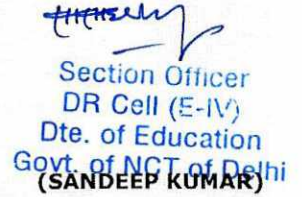 Section Officer
DR Cell (E-IV)
Dte. of Education
Govt. of NCT of Delhi
(SANDEEP KUMAR)